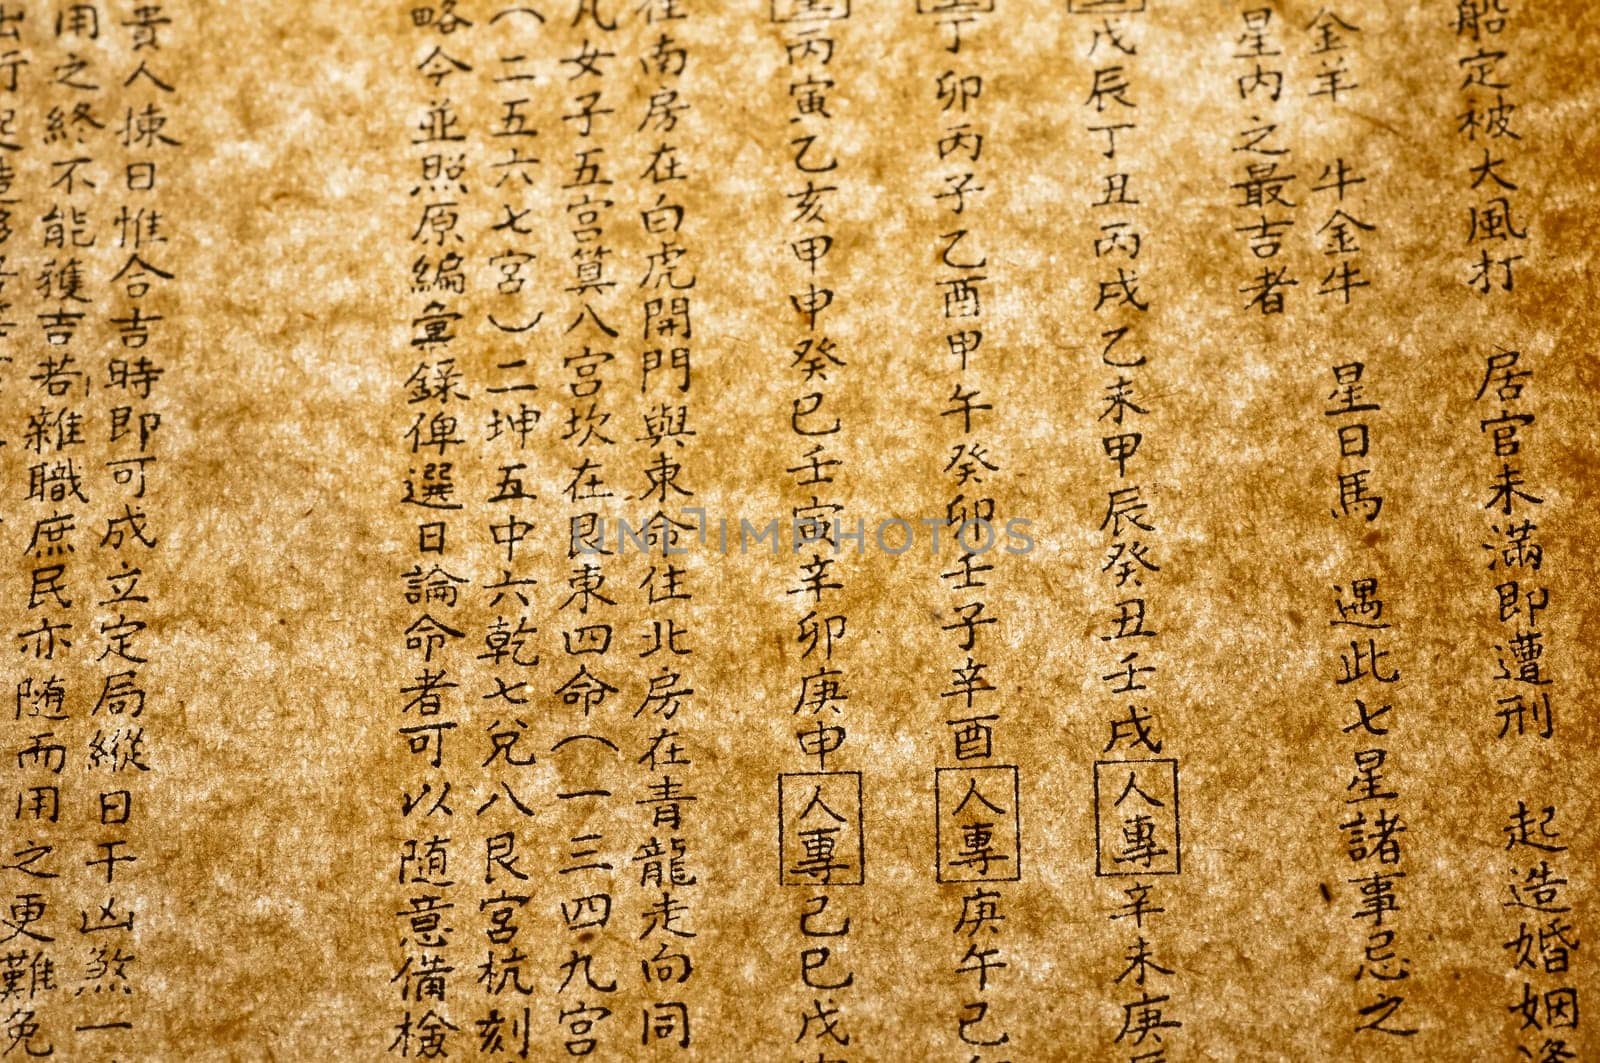 船定被大風打 居官未滿即遭刑 起造婚姻
金羊 牛金牛 星日馬 遇此七星諸事忌之
星內之最吉者
戊辰丁丑丙戌乙未甲辰癸丑壬戌 人專 辛未庚
丁卯丙子乙酉甲午癸卯壬子辛酉 人專 庚午己
丙寅乙亥甲申癸巳壬寅辛卯庚申 人專 己巳戊
在南房在白虎開門與東命住北房在青龍走向同
凡女子五宮算八宮坎在艮東四命(一三四九宮
(二五六七宮)二坤五中六乾七兌八艮宮杭刻
略今並照原編彙錄俾選日論命者可以隨意備檢
貴人揀日惟合吉時即可成立定局縱日干凶煞一
用之終不能獲吉若雜職庶民亦隨而用之更難免
出行起造
UNLIMPHOTOS